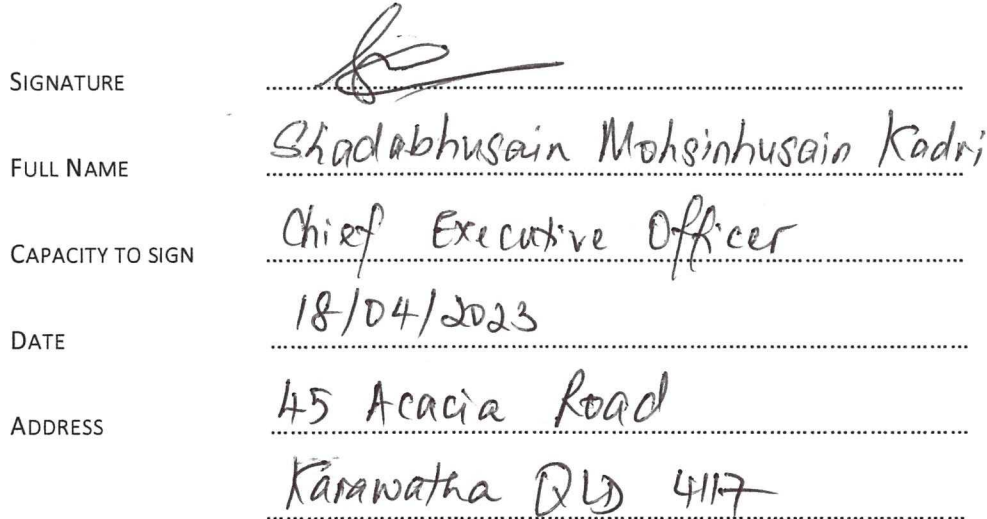 SIGNATURE
FULL NAME Shadabhusain Mohsinhusain Kadri
CAPACITY TO SIGN Chief Executive Officer
DATE 18/04/2023
ADDRESS 45 Acacia Road
Karawatha QLD 4117